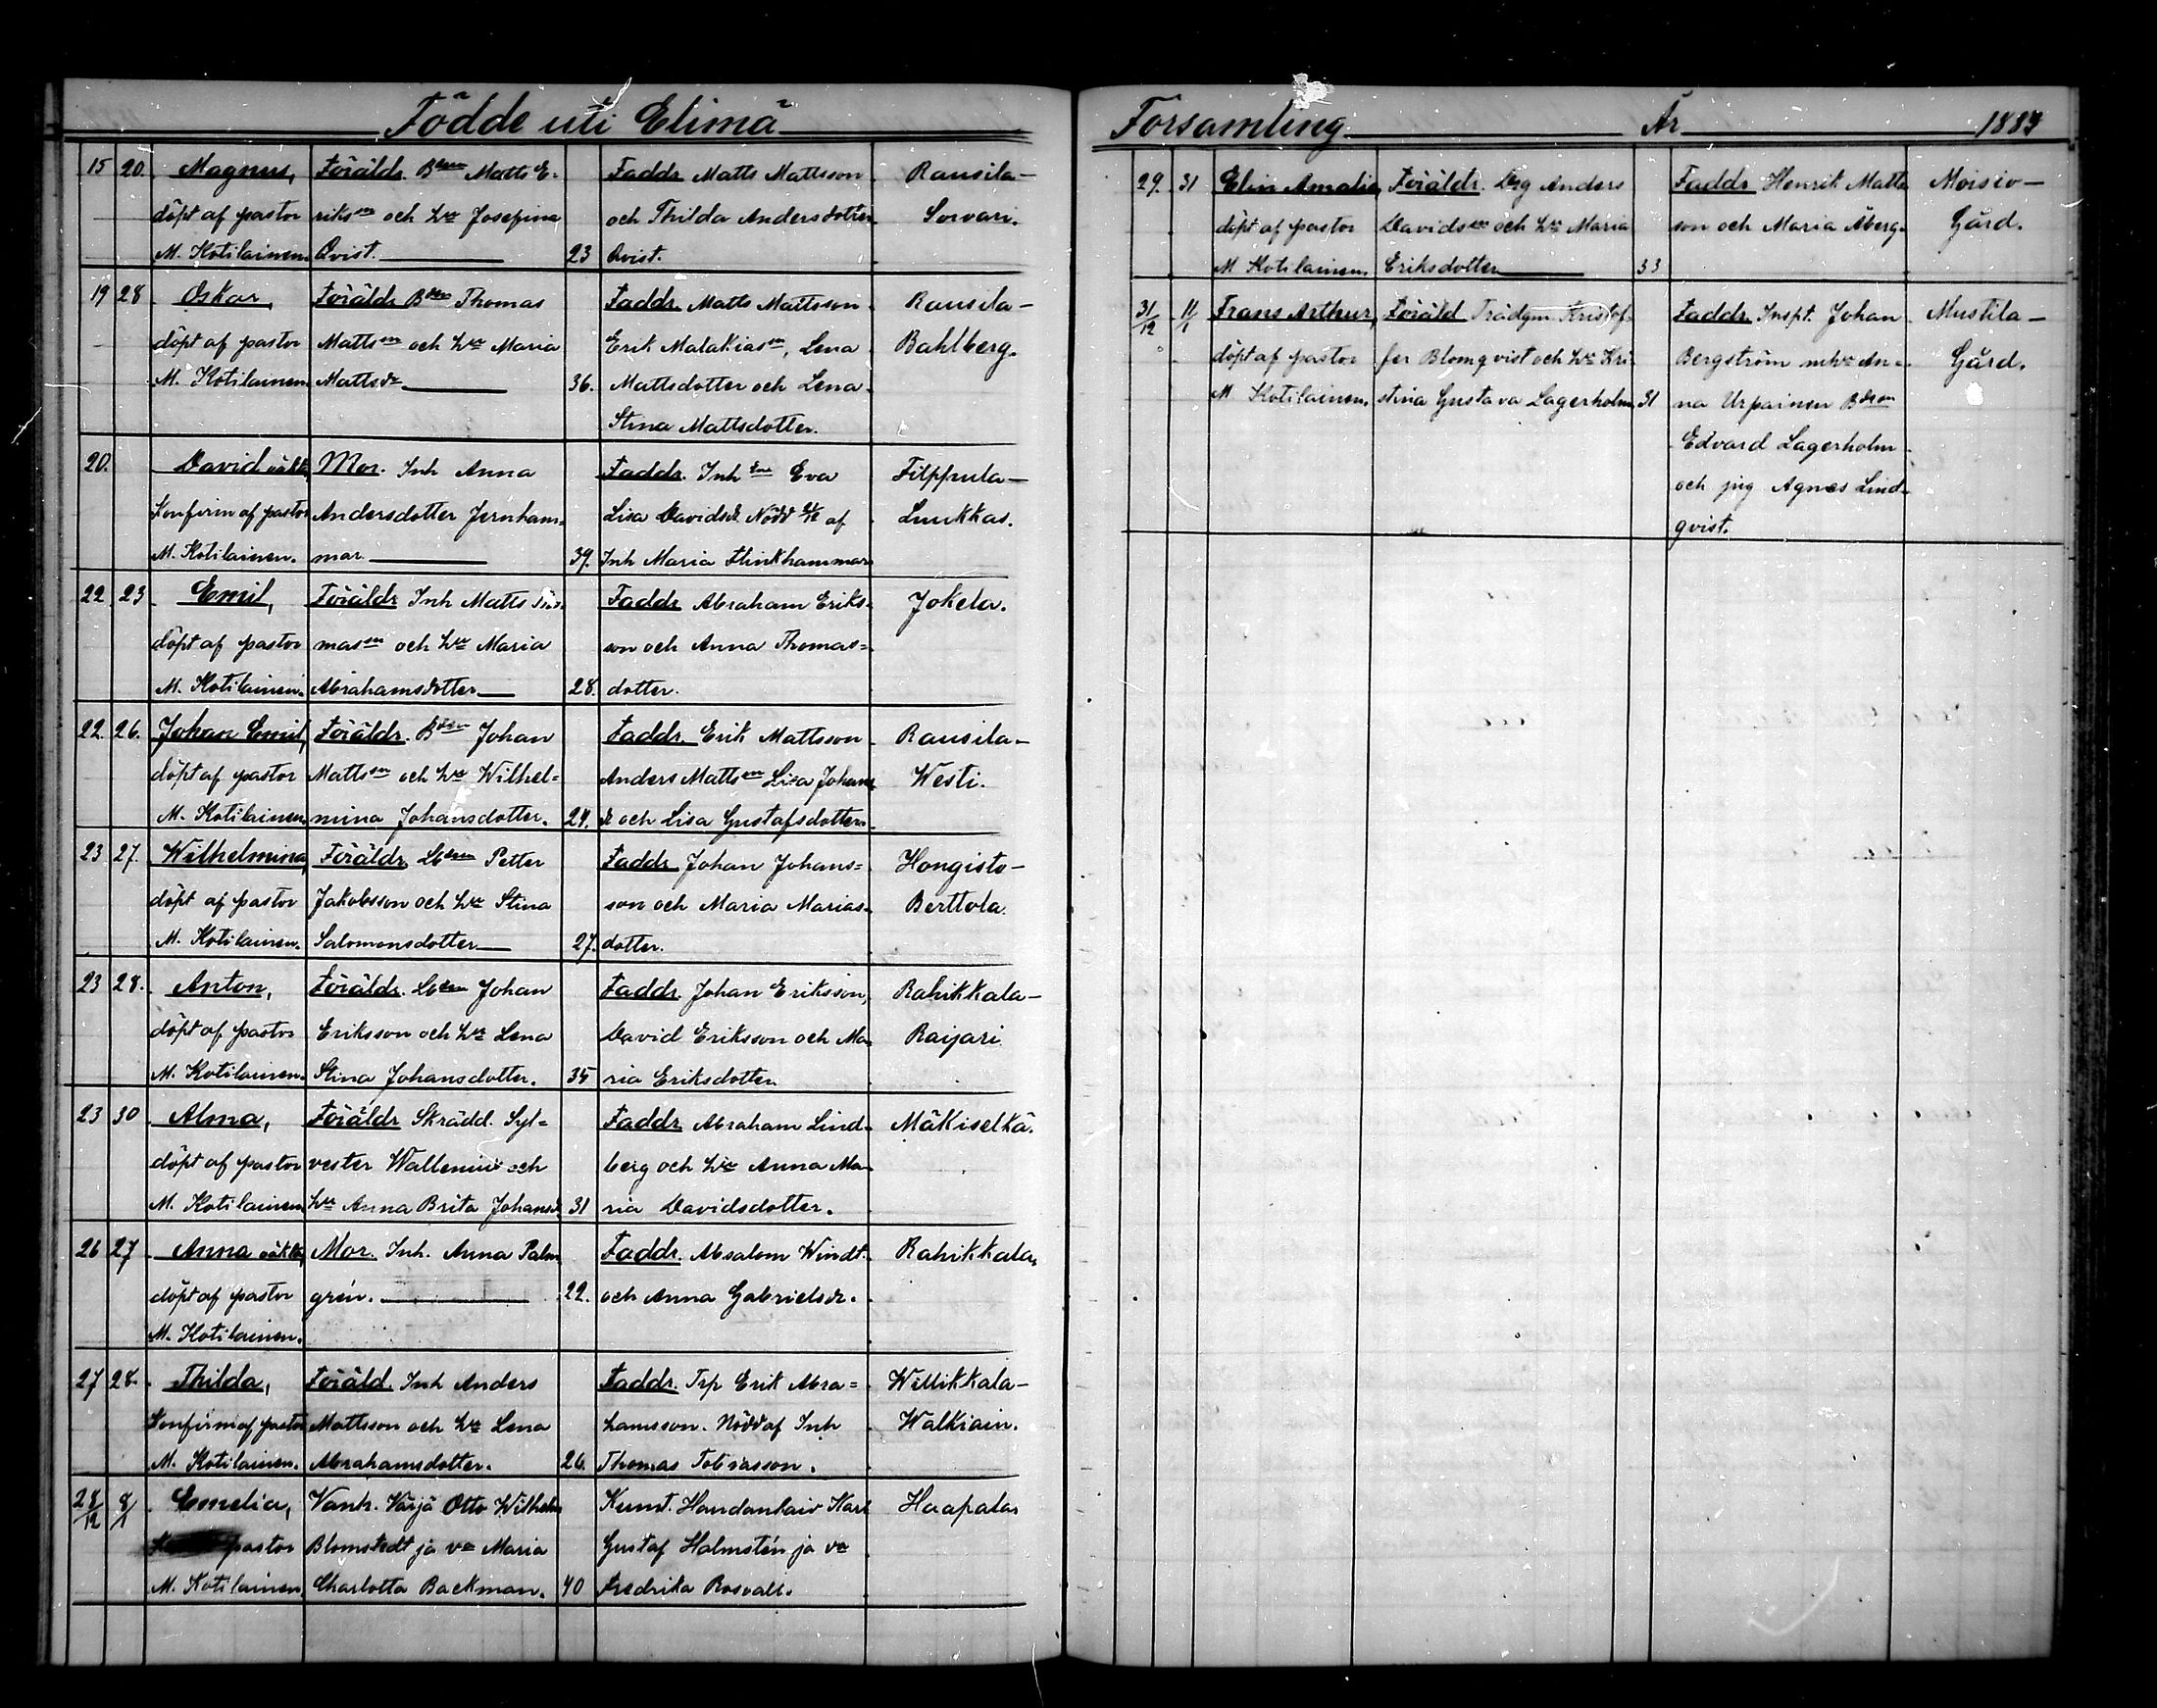 Födde uti Elimä
15 20. Magnus, Föräldr. Bdson Matts E- Faddr Matts Mattsson Rausila-
döpt af pastor riksson och hu Josefina och Thilda Andersdotter Sorvari.
M. Kotilainen. Qvist. 23 Qvist.
19 28 Oskar, Föräldr Bdson Thomas Faddr. Matts Mattsson Rausila-
döpt af pastor Mattssn och hu Maria Erik Malakiassn, Lena Bahlberg.
M. Kotilainen Mattsdr 36. Mattsdotter och Lena
Stina Mattsdotter.
20. David oäkta Mor. Inh Anna Faddr. Inh Eva Filppula-
Konfirm af pastor Andersdotter Jernham- Lisa Davidsdr Nödd 21/12 af Luukkas.
M. Kotilainen. mar 39. Inh Maria Flinkhammar
22 23 Emil, Föräldr Inh Matts Faddr Abraham Eriks- Jokela.
döpt af pastor massn och hu Maria son och Anna Thomas=
M. Kotilainen. Abrahamsdotter 28. dotter.
22. 26. Johan Emil, Föräldr. Bdson Johan Faddr. Erik Mattsson Rausila-
döpt af pastor Mattssn och hu Wilhel= Anders Mattssn Lisa Johans Westi.
M. Kotilainen. mina Johansdotter. 24. dr och Lisa Gustafsdotter
23 27. Wilhelmina, Föräldr Petter Faddr Johan Johans= Hongisto-
döpt af pastor Jakobsson och hu Stina son och Maria Marias- Berttola.
M. Kotilainen. Salomonsdotter 27. dotter.
23 28. Anton, Föräldr. Johan Faddr. Johan Eriksson, Rahikkala-
döpt af pastor Eriksson och hu Lena David Eriksson och Ma- Raijari
M. Kotilainen. Stina Johansdotter. 35 ria Eriksdotter.
23 30 Alma, Föräldr Skrädd. Syl= Faddr Abraham Lind- Mäkiselkä.
döpt af pastor vester Wallenius och berg och hu Anna Ma-
M. Kotilainen hu Anna Brita Johansdr 31 ria Davidsdotter.
26 27 Anna oäkta, Mor. Inh. Anna Palm Faddr. Absalom Windt. Rahikkala.
döpt af pastor grén. 22. och Anna Gabrielsdr.
M. Kotilainen.
27 28. Thilda, Föräld. Inh Anders Faddr. Trp Erik Abra= Willikkala-
Konfirm af pastor Mattsson och hu Lena hamsson. Nödd af Inh Walkiain.
M. Kotilainen. Abrahamsdotter. 26. Thomas Tobiasson.
28/12 8/1 Emelia, Vanh. Värjä Otto Wilhelm Kunt. Handanlaiv Karl Haapala
pastor Blomstedt ja va Maria Gustaf Halmstén ja va
M. Kotilainen Charlotta Backman. 40 Fredrika Rosvall.
Församling År 1887
29. 31 Elin Amalia, Föräldr. Drg Anders Faddr Henrik Matts Moisio-
döpt af pastor Davidssn och hu Maria son och Maria Åberg. Gård.
M Kotilainen. Eriksdotter 33
31/12 11/1 Frans Arthur, Föräld Trädgm Kristof- Faddr. Inspt. Johan Mustila-
döpt af pastor fer Blomqvist och hu Kri- Bergström m hu An- Gård.
M Kotilainen. stina Gustava Lagerholm 31 na Urpainen Bdson
Edvard Lagerholm
och pig Agnes Lind-
qvist.